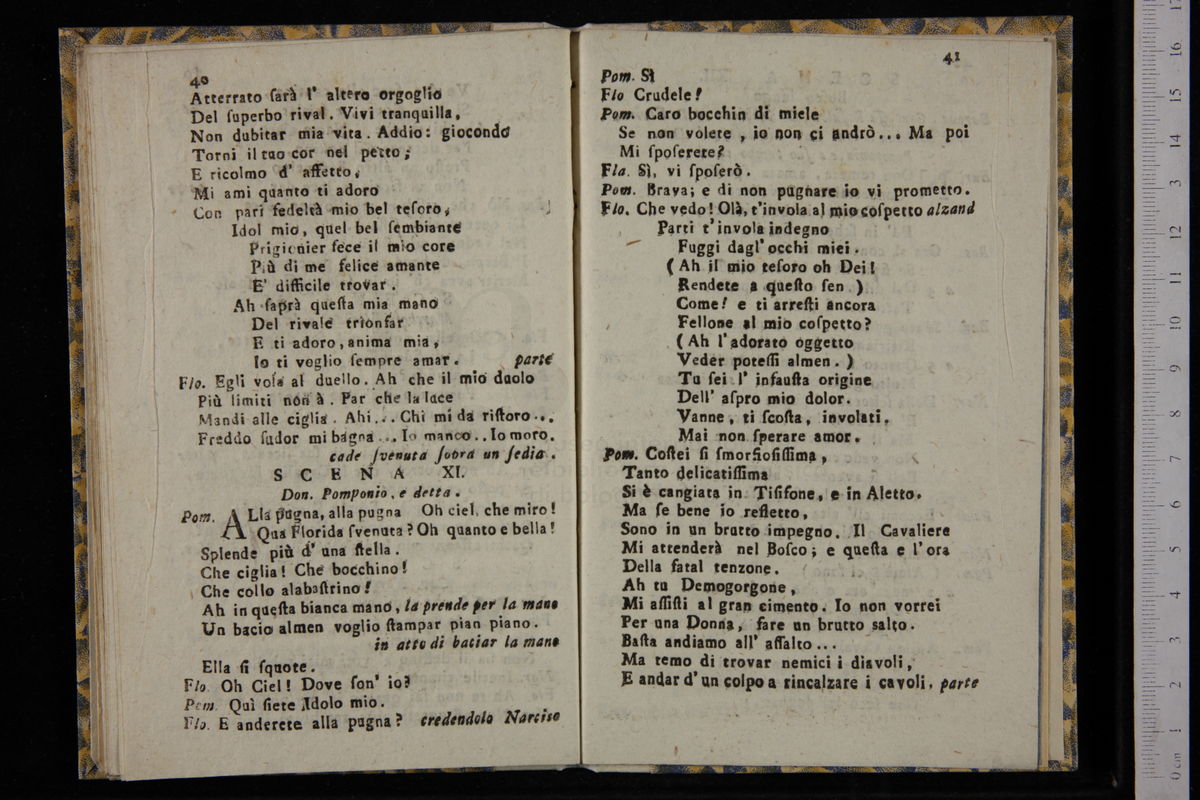 40
Atterrato ſarà l' altero orgoglio
Del ſuperbo rival. Vivi tranquilla,
Non dubitar mia vita. Addio: giocondo
Torni il tuo cor nel petto;
E ricolmo d' affetto,
Mi ami quanto ti adoro
Con pari fedeltà mio bel teſoro,
Idol mio, quel bel ſembiante
Prigionier fece il mio core
Più di me felice amante
E' difficile trovar.
Ah ſaprà queſta mia mano
Del rivale trionfar
E ti adoro, anima mia,
Io ti voglio ſempre amar. parte
Flo. Egli vola al duello. Ah che il mio duolo
Più limiti non à. Par che la luce
Mandi alle ciglia. Ahi... Chi mi da riſtoro...
Freddo ſudor mi bagna... Io manco.. Io moro.
cade ſvenuta ſopra un ſedia.
SCENA XI.
Don. Pomponio, e detta.
Pom. ALla pugna, alla pugna Oh ciel, che miro!
Qua Florida ſvenuta? Oh quanto e bella!
Splende più d' una ſtella.
Che ciglia! Che bocchino!
Che collo alabaſtrino!
Ah in queſta bianca mano, la prende per la mano
Un bacio almen voglio ſtampar pian piano.
in atto di baciar la mano
Ella ſi ſquote.
Flo. Oh Ciel! Dove ſon' io?
Pom. Quì ſiete Idolo mio.
Flo. E anderete alla pugna? credendolo Narciso
41
Pom. Sì
Flo Crudele!
Pom. Caro bocchin di miele
Se non volete, io non ci andrò... Ma poi
Mi ſpoſerete?
Fla. Sì, vi ſpoſerò.
Pom. Brava; e di non pugnare io vi prometto.
Flo. Che vedo! Olà, t'invola al mio coſpetto alzand
Parti t'invola indegno
Fuggi dagl' occhi miei.
(Ah il mio teſoro oh Dei!
Rendete a queſto ſen.)
Come! e ti arreſti ancora
Fellone al mio coſpetto?
(Ah l' adorato oggetto
Veder poteſſi almen.)
Tu ſei l' infauſta origine
Dell' aſpro mio dolor.
Vanne, ti ſcoſta, involati.
Mai non ſperare amor.
Pom. Coſtei ſi ſmorfioſiſſima,
Tanto delicatiſſima
Si è cangiata in Tiſifone, e in Aletto.
Ma ſe bene io refletto,
Sono in un brutto impegno. Il Cavaliere
Mi attenderà nel Boſco; e queſta e l' ora
Della fatal tenzone.
Ah tu Demogorgone,
Mi aſſiſti al gran cimento. Io non vorrei
Per una Donna, fare un brutto salto.
Baſta andiamo all' aſſalto...
Ma temo di trovar nemici i diavoli,
E andar d'un colpo a rincalzare i cavoli. parte